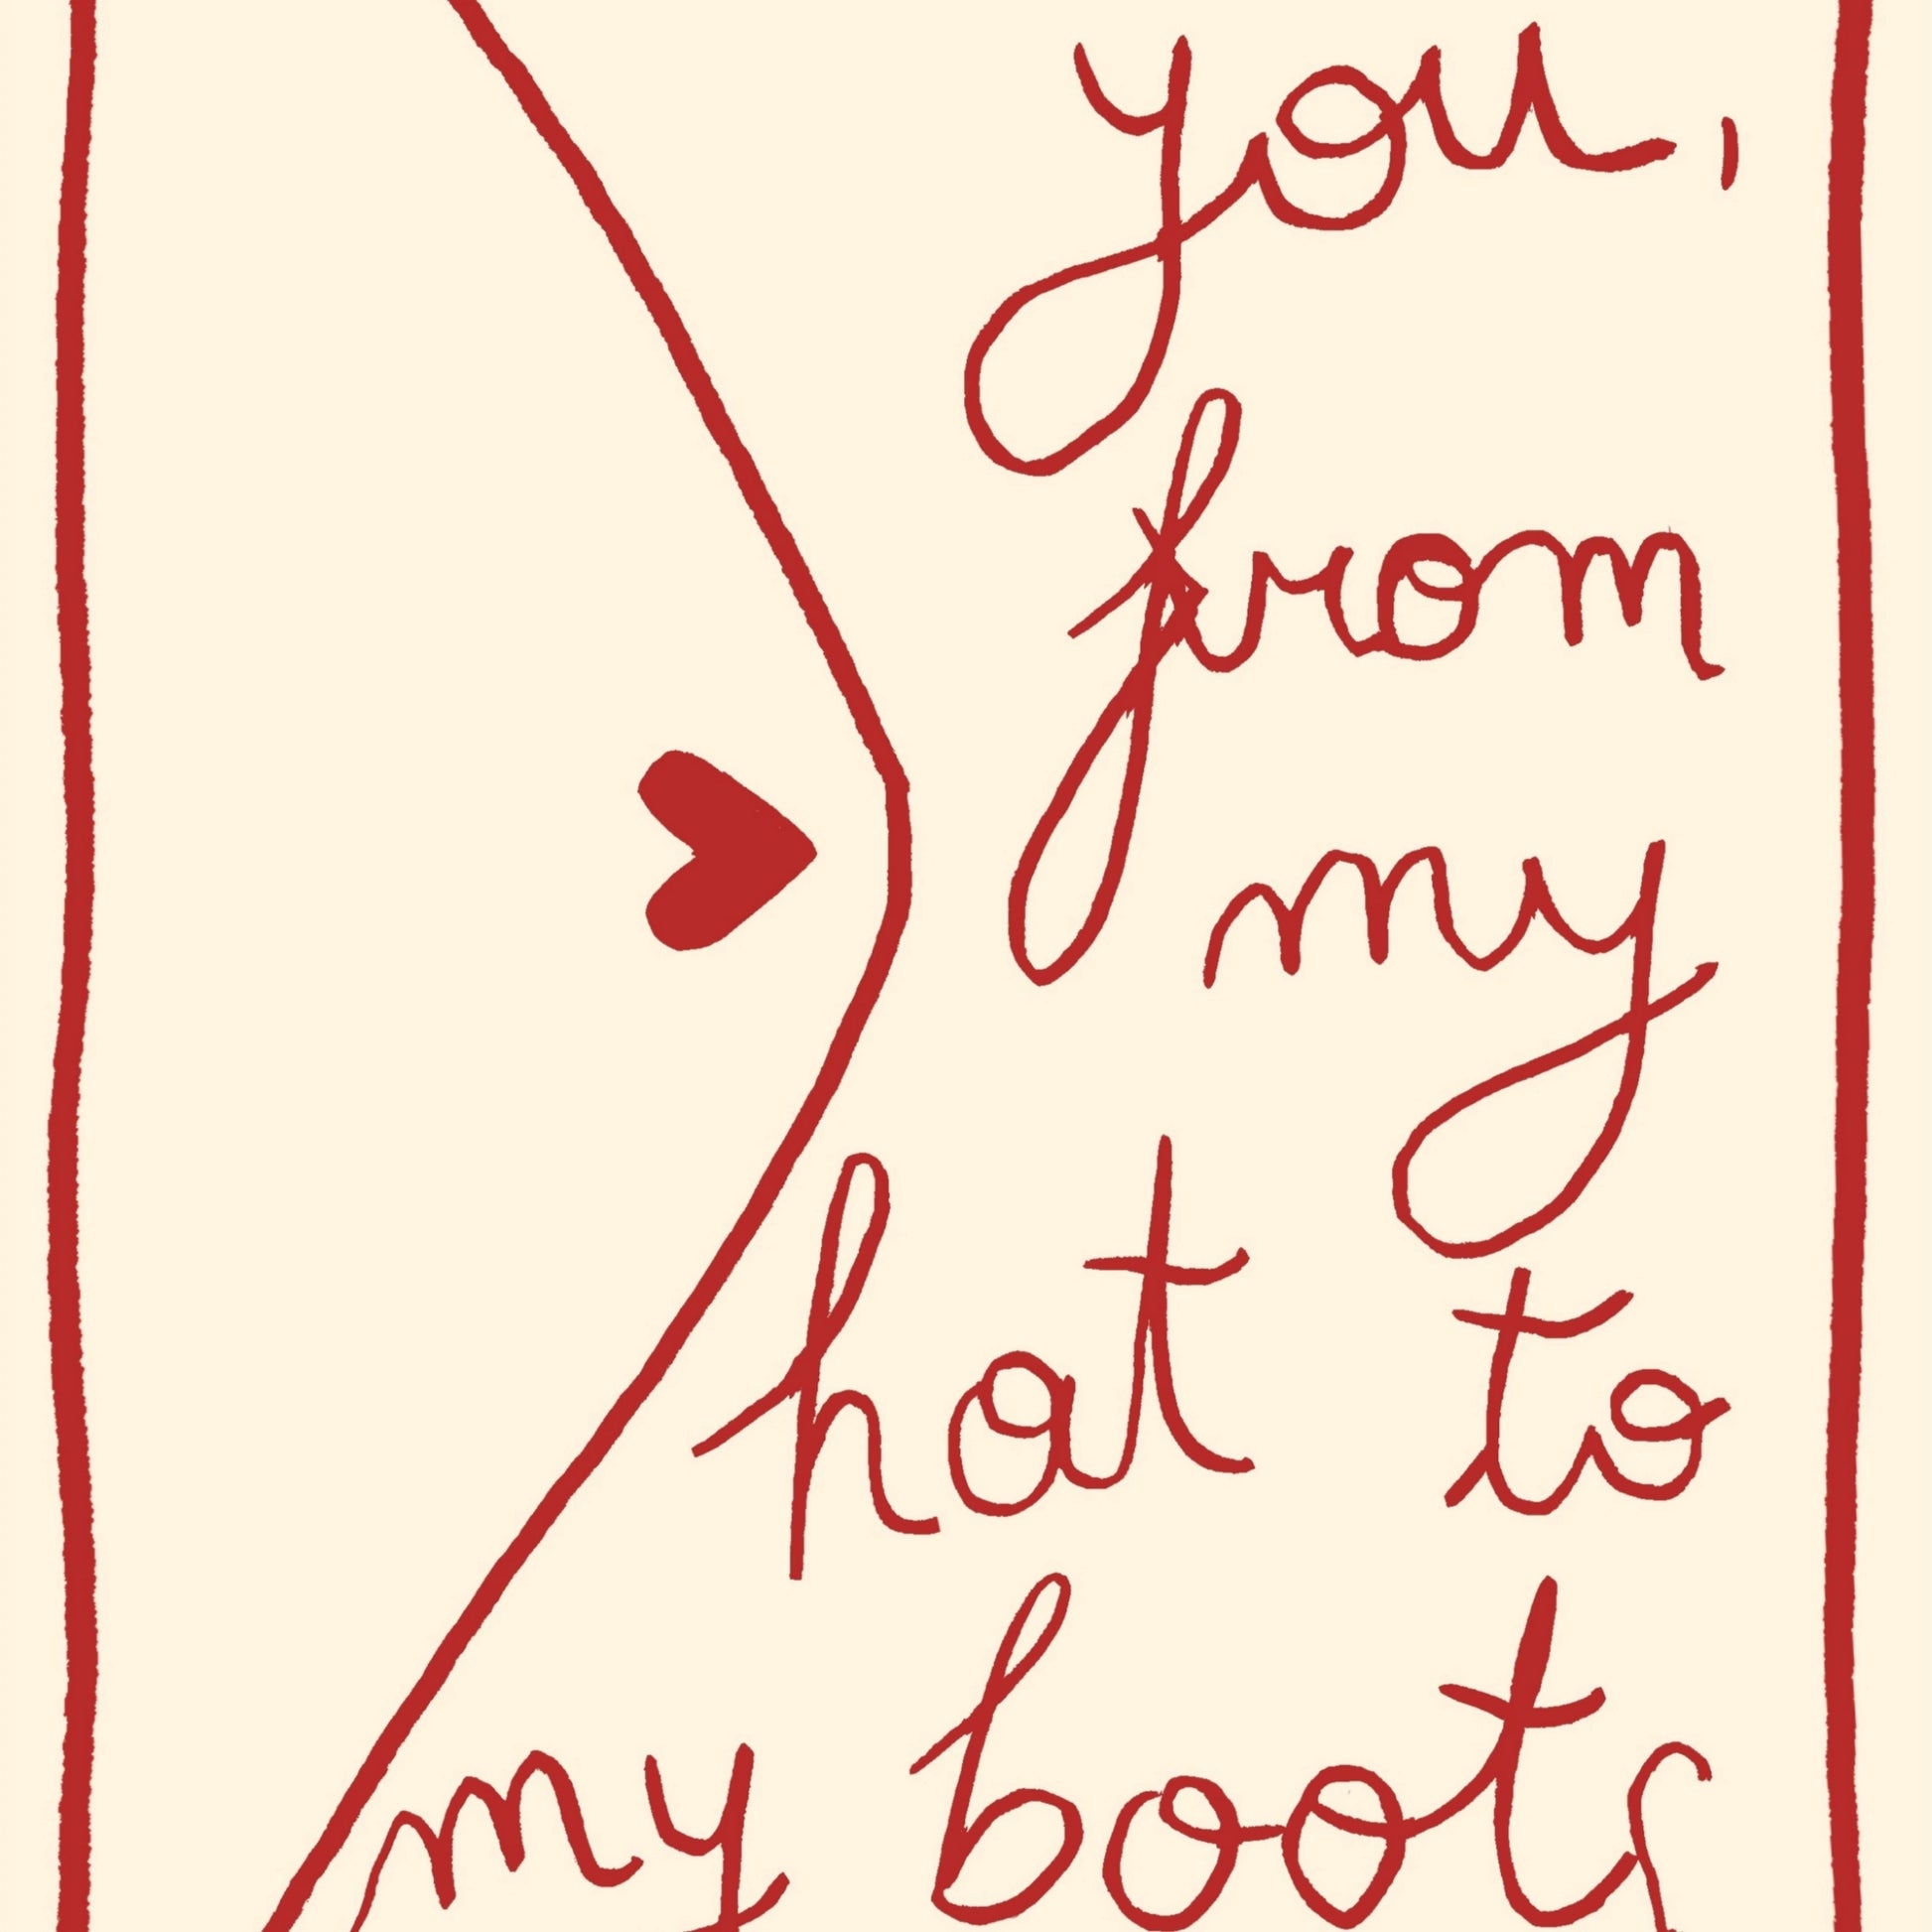 you,
from
my
hat to
my boots